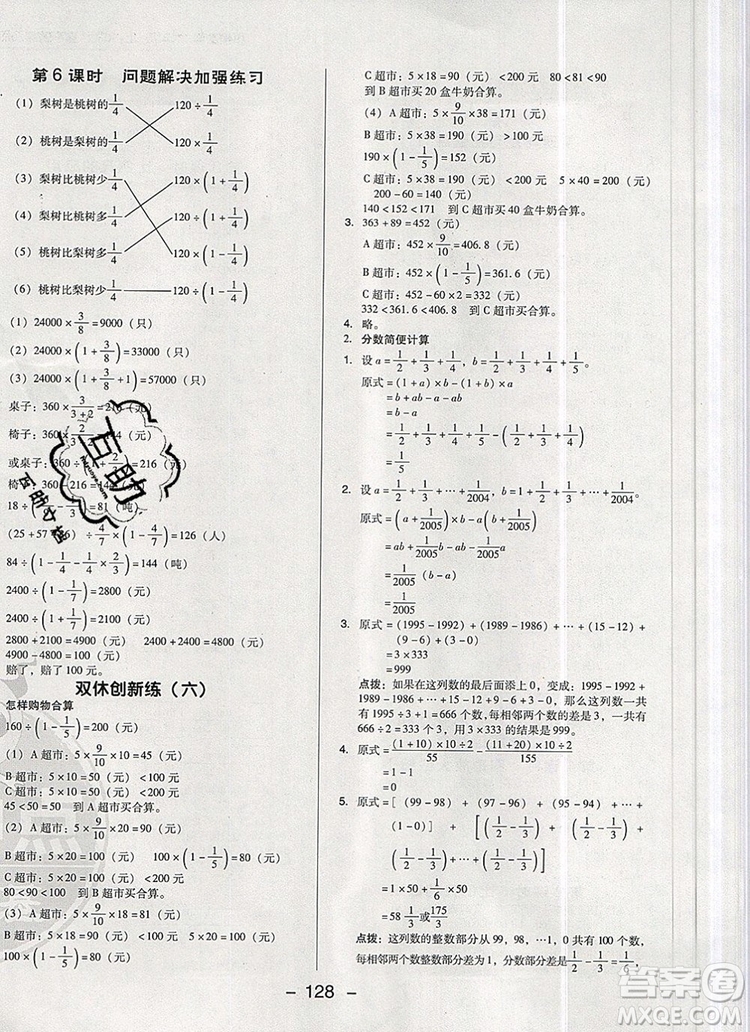 第6课时 问题解决加强练习
(1) 梨树是桃树的1/4 120÷1/4
(2) 桃树是梨树的1/4 120×1/4
(3) 梨树比桃树少1/4 120×(1+1/4)
(4) 梨树比桃树多1/4 120×(1-1/4)
(5) 桃树比梨树多1/4 120÷(1+1/4)
(6) 桃树比梨树少1/4 120÷(1-1/4)
(1) 24000×3/8=9000(只)
(2) 24000×(1+3/8)=33000(只)
(3) 24000×(1+3/8+1)=57000(只)
桌子:360×3/(3+2)=216(元)
椅子:360×
或桌子:360÷(1+2/3)=216(元)
椅子:
18÷ =81(吨)
(25+57+ )÷(1-4/7)=126(人)
84÷(1-1/4-1/4×2/3)=144(吨)
2400÷(1-1/7)=2800(元)
2400÷(1+1/7)=2100(元)
2800+2100=4900(元) 2400+2400=4800(元)
4900-4800=100(元)
赔了,赔了100元。
双休创新练(六)
怎样购物合算
160÷(1-1/5)=200(元)
(1) A超市:5×9/10×10=45(元)
B超市:5×10=50(元)<100元
C超市:5×10=50(元)<100元
45<50=50 到A超市买合算。
(2) A超市:5×9/10×20=90(元)
B超市:5×20=100(元) 100×(1-1/5)=80(元)
C超市:5×20=100(元)-10=90(元)
80<90=90 到B超市买合算。
(3) A超市:5×9/10×18=81(元)
B超市:5×20=100(元)
100×(1-1/5)=80(元)
C超市:5×18=90(元)<100元 80<81<90
到B超市买20盒牛奶合算。
(4) A超市:5×9/10×38=171(元)
B超市:5×38=190(元)>100元
190×(1-1/5)=152(元)
C超市:5×38=190(元) 5×40=200(元)
200-60=140(元)
140<152<171 到C超市买40盒牛奶合算。
3. 363+89=452(元)
A超市:452×9/10=406.8(元)
B超市:452×(1-1/5)=361.6(元)
C超市:452-60×2=332(元)
332<361.6<406.8 到C超市买合算。
4. 略。
2. 分数简便计算
1. 设a=1/2+1/3+1/4,b=1/2+1/3+1/4+1/5。
原式=(1+a)×b-(1+b)×a
=b+ab-a-ab
=b-a
=1/5
2. 设a=1/2+1/3+…+1/2004,b=1+1/2+1/3+…+1/2004。
原式=(a+1/2005)×b-(b+1/2005)×a
=ab+b/2005-ab-a/2005
=1/2005(b-a)
=1/2005
3. 原式=(1995-1992)+(1989-1986)+…+(15-12)+
(9-6)+(3-0)
=333×3
=999
点拨:如果在这列数的最后面添上0,变成:1995-1992
+1989-1986+…+15-12+9-6+3-0,那么这列数一
共有1995÷3+1=666个数,每相邻两个数的差是3,一共
有666÷2=333个差,用3×333就可以算出结果是999。
4. 原式=(1+10)×10÷2/55-(11+20)×10÷2/155
=1-1
=0
5. 原式=[(99-98)+(97-96)+(95-94)+…+
(1-0)]+[(1/2-1/3)+(1/2-1/3)+(1/2-1/3)
+(1/2-1/3)+…+(1/2-1/3)]
=1×50+(1/2-1/3)×50
=58 1/3或175/3
点拨:这列数的整数部分从99,98,…1,0共有100个数,
每相邻两个数整数部分差为1,分数部分差为1/2-1/3=1/6。
- 128 -
百助
百助文档
答案圈
MXQE.COM